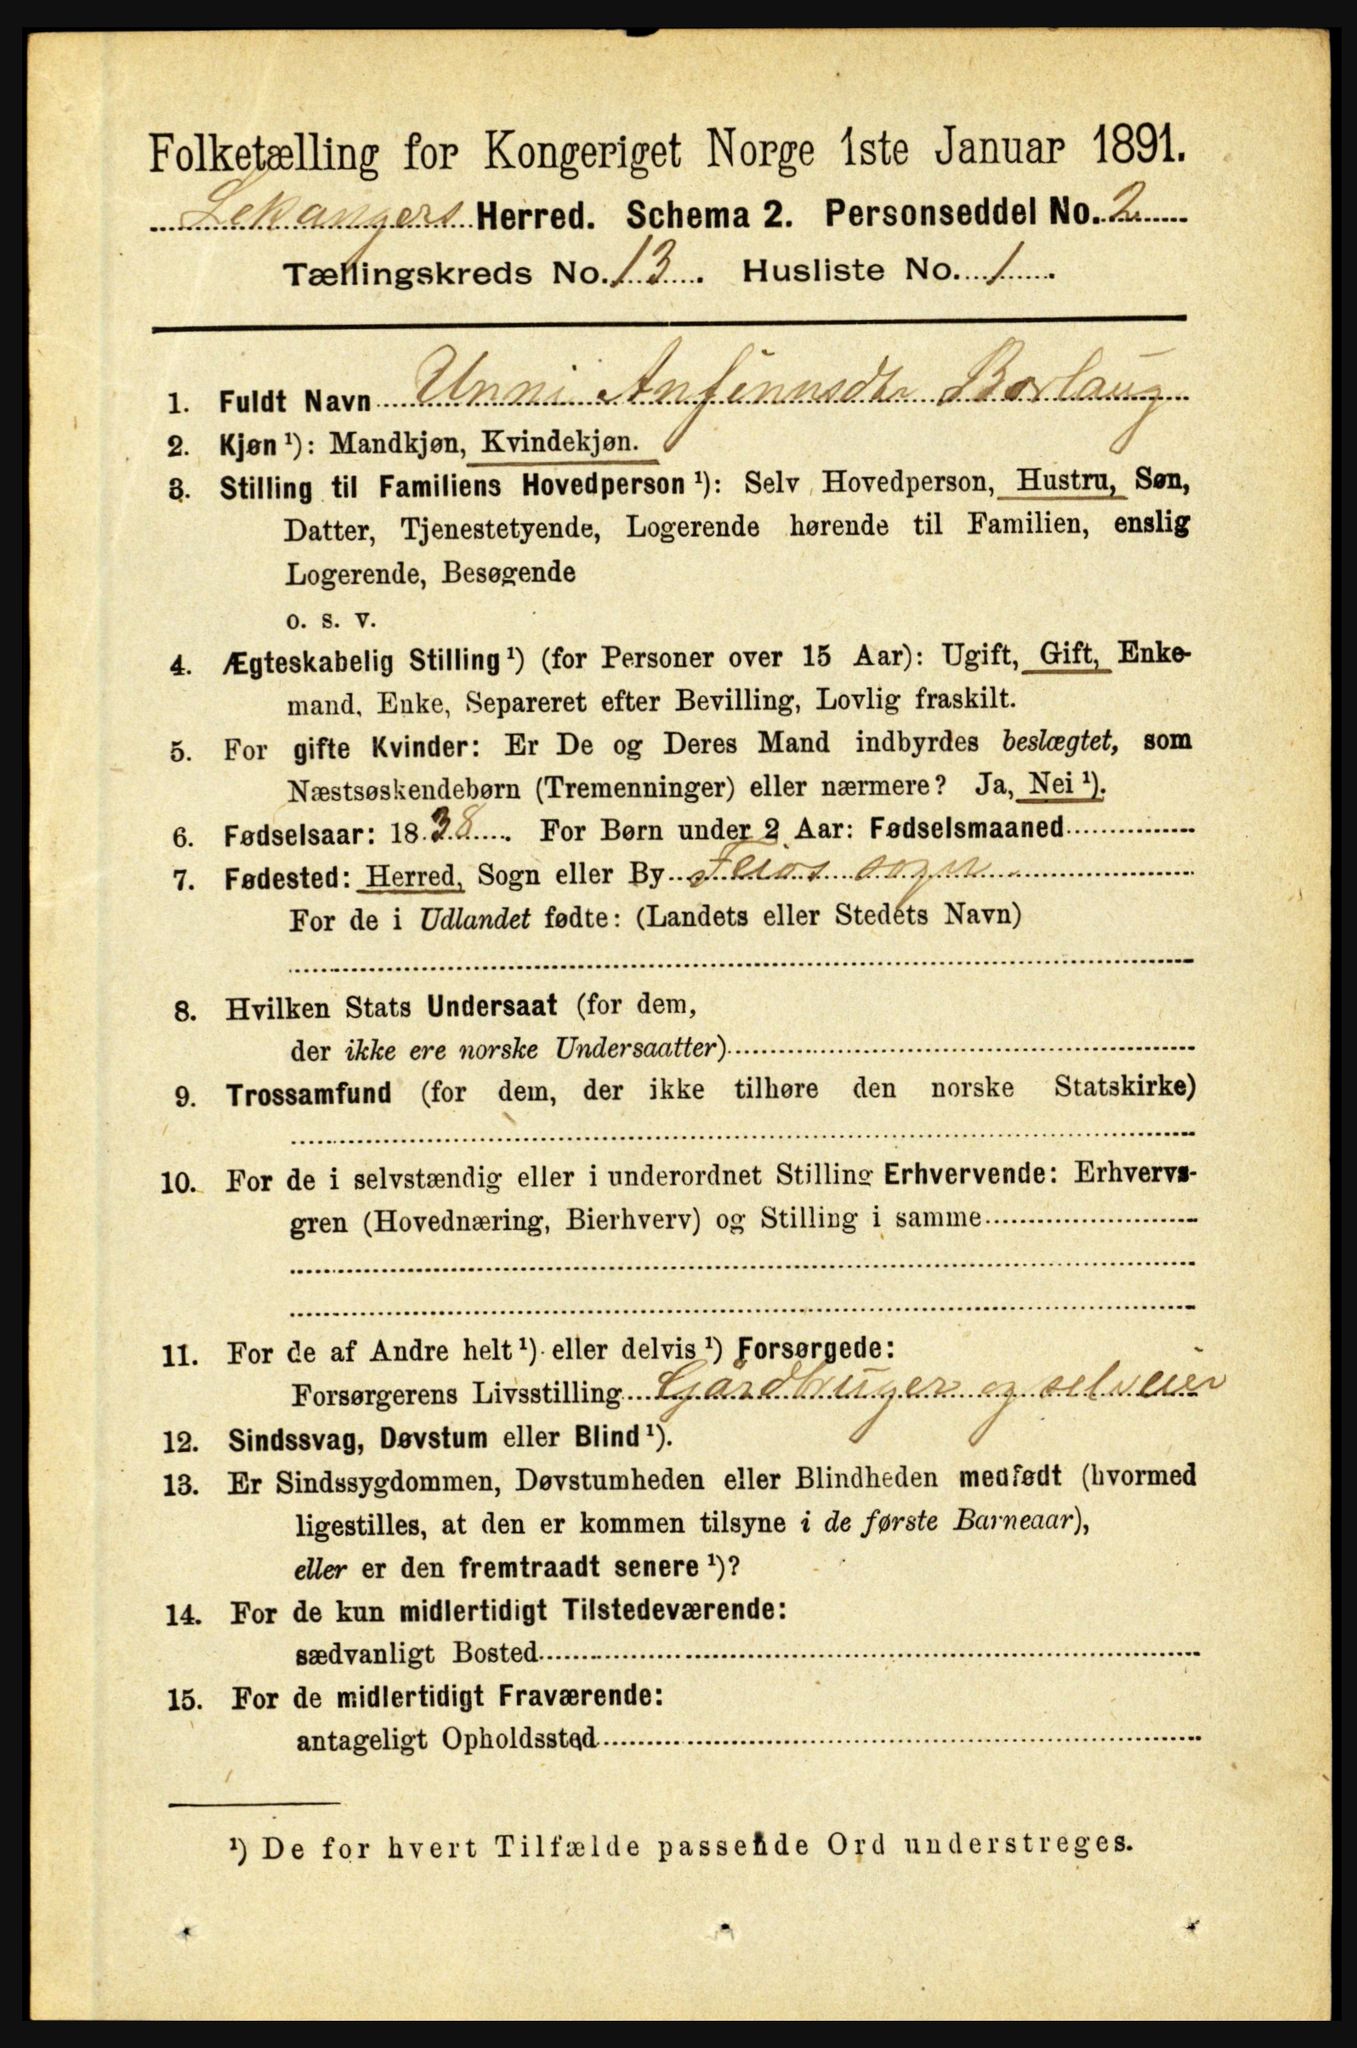 Folketælling for Kongeriget Norge 1ste Januar 1891.
Lekangers Herred. Schema 2. Personseddel No. 2
Tællingskreds No. 13. Husliste No. 1.
1. Fuldt Navn Unni Anfinnsdtr Borlaug
2. Kjøn ¹): Mandkjøn, Kvindekjøn.
3. Stilling til Familiens Hovedperson ¹): Selv Hovedperson, Hustru, Søn,
Datter, Tjenestetyende, Logerende hørende til Familien, enslig
Logerende, Besøgende
o. s. v.
4. Ægteskabelig Stilling ¹) (for Personer over 15 Aar): Ugift, Gift, Enke-
mand, Enke, Separeret efter Bevilling, Lovlig fraskilt.
5. For gifte Kvinder: Er De og Deres Mand indbyrdes beslægtet, som
Næstsøskendebørn (Tremenninger) eller nærmere? Ja, Nei ¹).
6. Fødselsaar: 1838. For Børn under 2 Aar: Fødselsmaaned
7. Fødested: Herred, Sogn eller By Feios sogn
For de i Udlandet fødte: (Landets eller Stedets Navn)
8. Hvilken Stats Undersaat (for dem,
der ikke ere norske Undersaatter)
9. Trossamfund (for dem, der ikke tilhøre den norske Statskirke)
10. For de i selvstændig eller i underordnet Stilling Erhvervende: Erhvervs-
gren (Hovednæring, Bierhverv) og Stilling i samme
11. For de af Andre helt ¹) eller delvis ¹) Forsørgede:
Forsørgerens Livsstilling Gårdbruger og selveier
12. Sindssvag, Døvstum eller Blind ¹).
13. Er Sindssygdommen, Døvstumheden eller Blindheden medfødt (hvormed
ligestilles, at den er kommen tilsyne i de første Barneaar),
eller er den fremtraadt senere ¹)?
14. For de kun midlertidigt Tilstedeværende:
sædvanligt Bosted
15. For de midlertidigt Fraværende:
antageligt Opholdssted
¹) De for hvert Tilfælde passende Ord understreges.